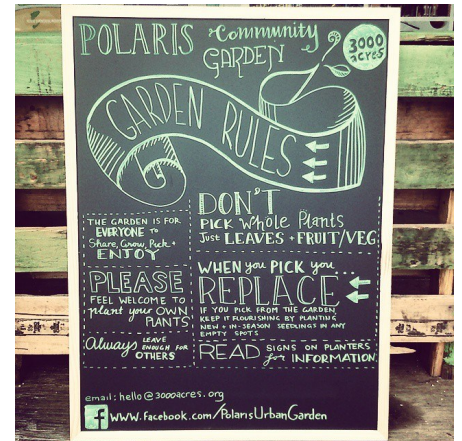 POLARIS Community
GARDEN
3000
acres
GARDEN RULES
THE GARDEN IS FOR
EVERYONE TO
Share, Grow, Pick +
ENJOY
PLEASE
FEEL WELCOME TO
plant your OWN
PLANTS
Always LEAVE
ENOUGH FOR
OTHERS
DON'T
PICK Whole Plants
Just LEAVES + FRUIT/VEG
WHEN you PICK you
REPLACE
IF YOU PICK FROM THE GARDEN,
KEEP IT FLOURISHING BY PLANTING
NEW + IN-SEASON SEEDLINGS IN ANY
EMPTY SPOTS
READ SIGNS ON PLANTERS
for INFORMATION
email: hello@3000acres.org
f www.facebook.com/PolarisUrbanGarden